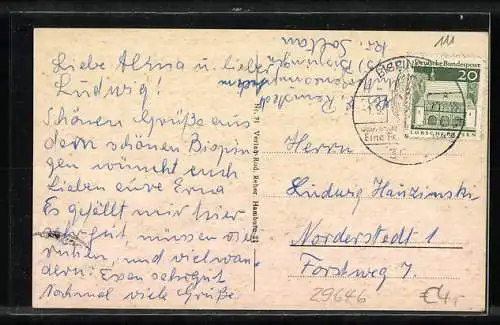 Liebe Alma u. lieber
Ludwig!
Schönen Grüße aus
dem schönen Bispin
gen wünscht euch
Lieben eure Erna
Es gefällt mir hier
sehrgut, müssen viel
ruhen, und vielwan
dern. Essen sehrgut
Nochmal viele Grüße
Kr. Soltau
Bispingen
Nr. 71 Verlag Rud. Reher, Hamburg
BISPIN
Deutsche Bundespost
20
LORSCH/HESSEN
Herrn
Ludwig Hauzinski
Norderstedt 1
Forstweg 7.
29646
€4,-